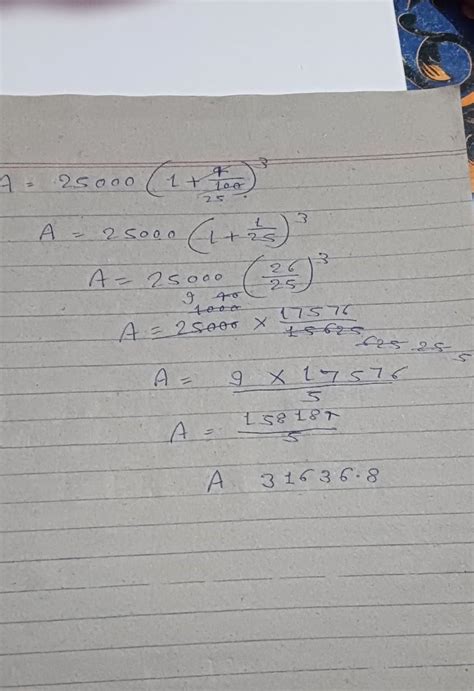 A = 25000 (1 + 4/100)^3
25
A = 25000 (1 + 1/25)^3
A = 25000 (26/25)^3
9 40
1000
A = 25000 × 17576/15625
625 25 5
A = 9 × 17576/5
A = 158184/5
A 31636.8